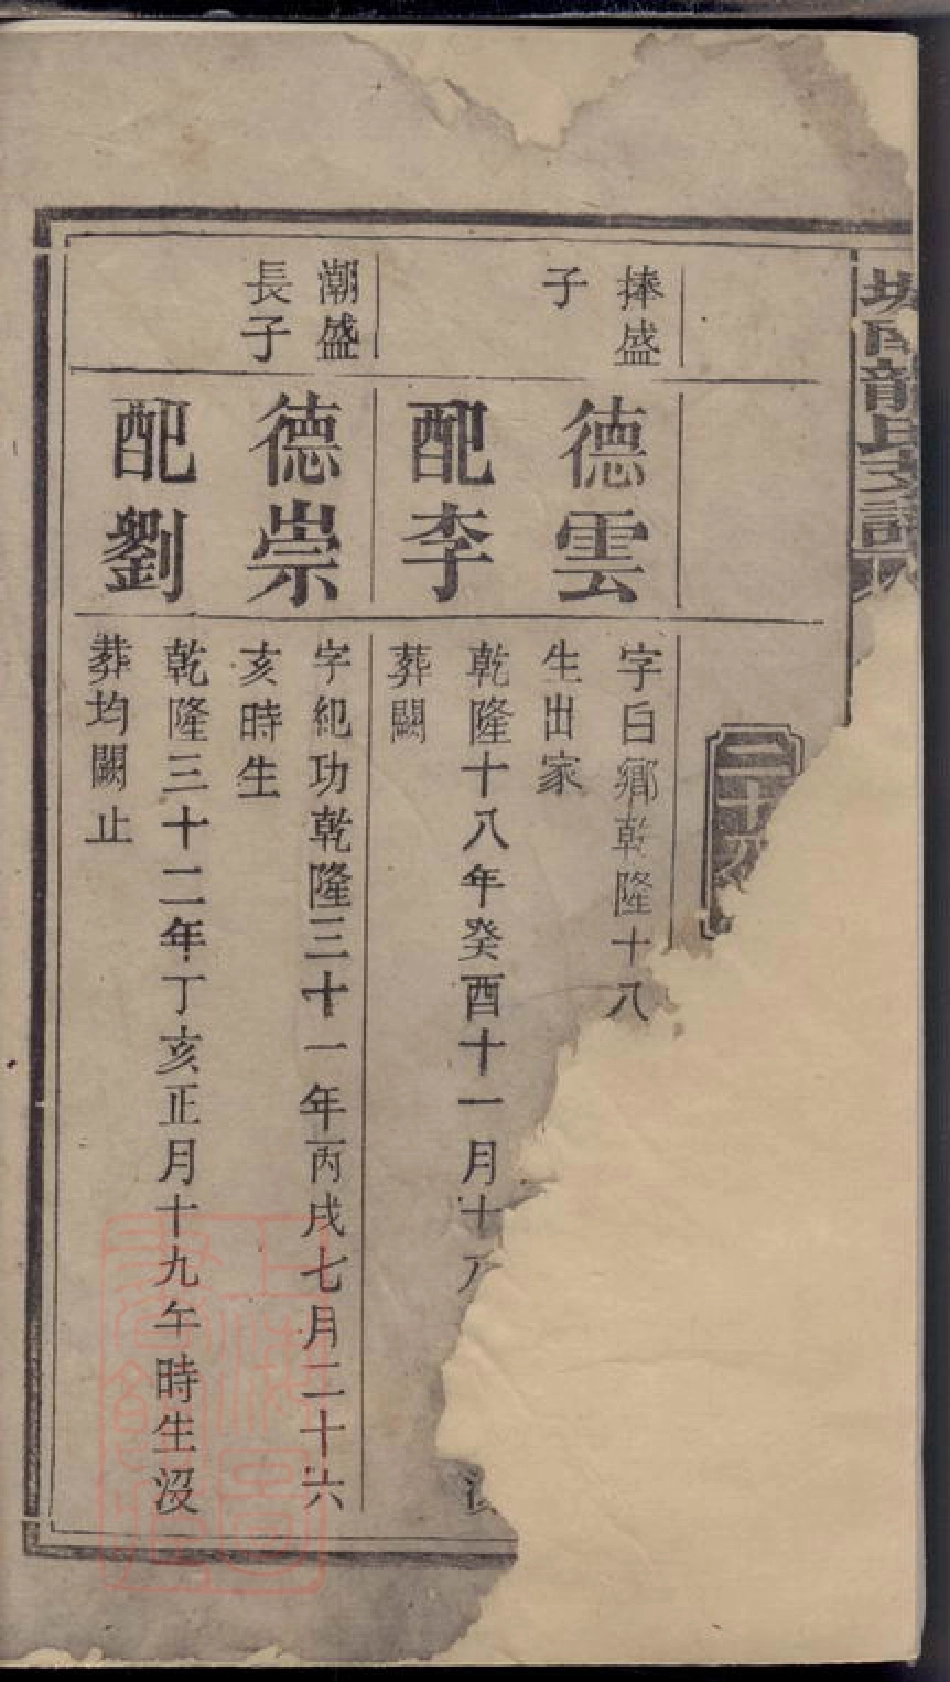 南龍氏支譜
二十
捧盛
子
德雲
字白鄉乾隆十八
生出家
配李
乾隆十八年癸酉十一月十
葬闕
潮盛
長子
德崇
字紀功乾隆三十一年丙戌七月二十六
亥時生
配劉
乾隆三十二年丁亥正月十九午時生沒
葬均闕止